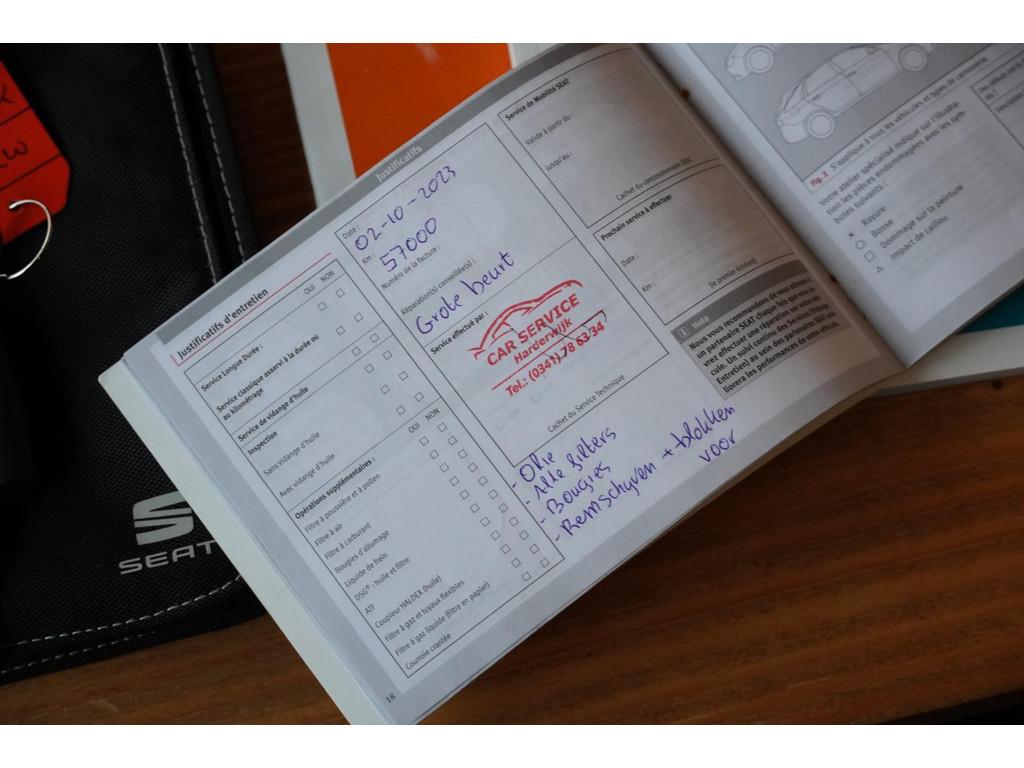 W
SEAT
Justificatifs
Justificatifs d'entretien
OUI NON
Service Longue Durée :
Service classique asservi à la durée ou
au kilométrage
Service de vidange d'huile
Inspection
Sans vidange d'huile
Avec vidange d'huile
Opérations supplémentaires :
OUI NON
Filtre à poussière et à pollen
Filtre à air
Filtre à carburant
Bougies d'allumage
Liquide de frein
DSG® : huile et filtre
ATF
Coupleur HALDEX (huile)
Filtre à gaz et tuyaux flexibles
Filtre à gaz liquide (filtre en papier)
Courroie crantée
18
Date :
02-10-2023
Km :
57000
Numéro de la facture :
Réparation(s) conseillée(s) :
Grote beurt
Service effectué par :
CAR SERVICE
Harderwijk
Tel.: (0341) 78 63 34
Cachet du Service Technique
- Olie
- Alle filters
- Bougies
- Remschyven + blokken
voor
Service de Mobilité SEAT
Valide à partir du :
Jusqu'au :
Cachet du concessionnaire SEAT
Prochain service à effectuer
Date :
Km :
(le premier échéant)
i Nota
Nous vous recommandons de vous adresser à
un partenaire SEAT chaque fois que vous de-
vrez effectuer une réparation sur votre véhi-
cule. Un suivi continu des Services (Filtres,
Entretien) au sein des partenaires SEAT op-
tiorera les performances de votre véhicule.
Fig. 2 S'applique à tous les véhicules et types de carrosserie.
Votre atelier spécialisé indique sur l'illustra-
tion les pièces endommagées avec les sym-
boles suivants :
× Rayure
○ Bosse
□ Dommage sur la peinture
△ Impact de caillou
Description